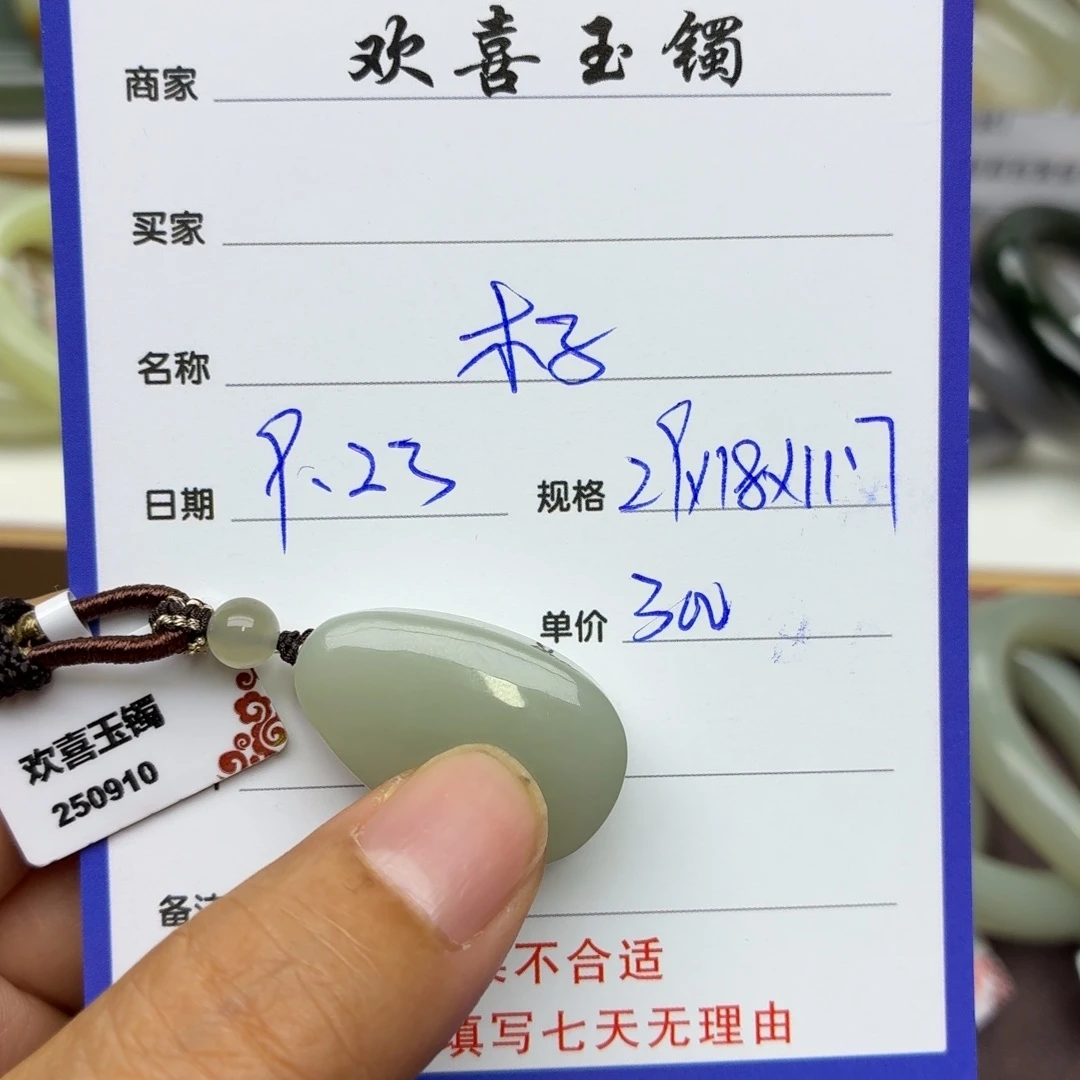 商家 欢喜玉镯
买家
名称 木子
日期 9.23 规格 29x18x11.7
单价 300
欢喜玉镯
250910
备注
不合适
填写七天无理由